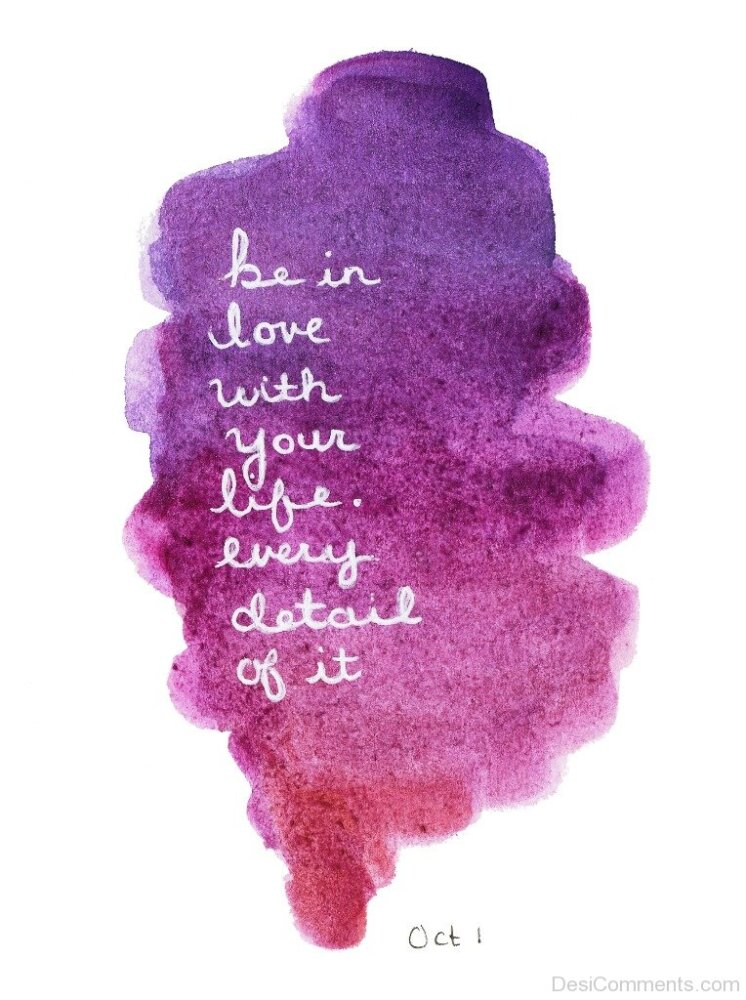 be in
love
with
your
life.
every
detail
of it
Oct 1
DesiComments.com